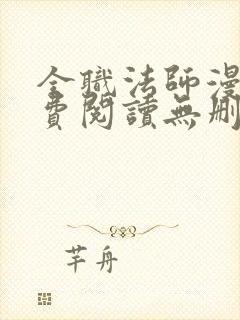 全職法師漫
費閱讀無刪
芊舟